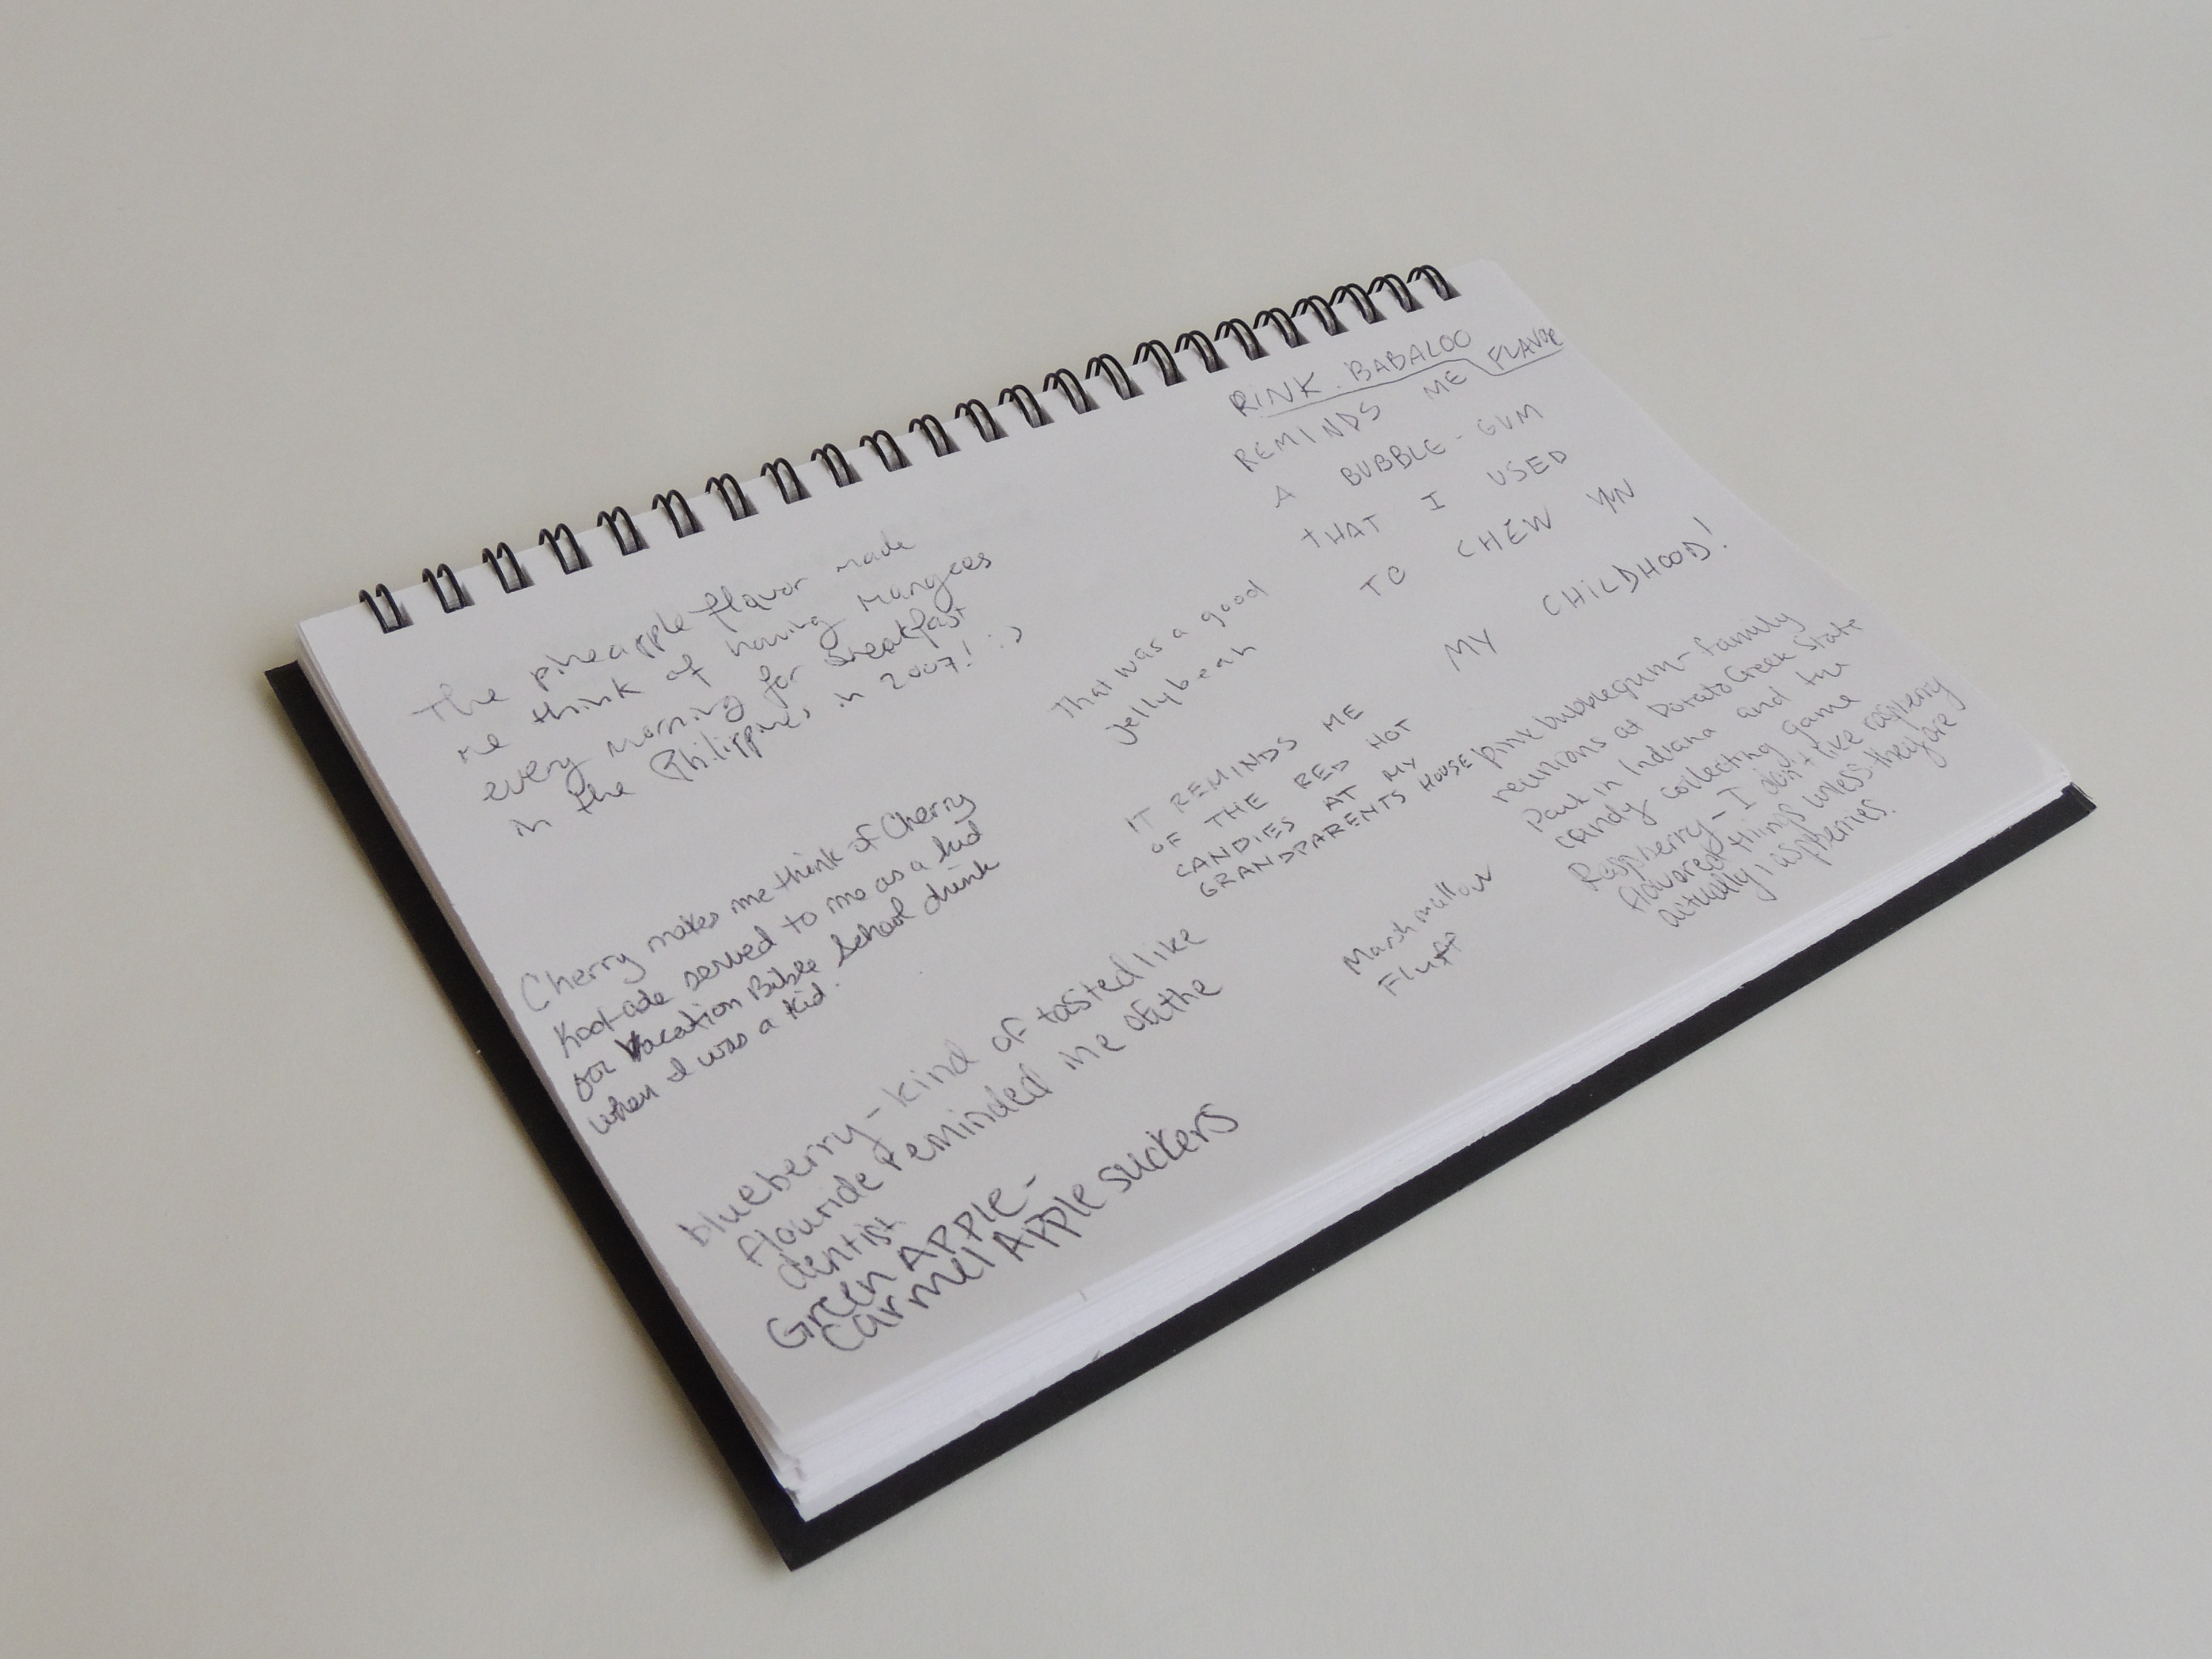 The pineapple flavor made
me think of having Mangoes
every morning for Breakfast
in the Philippines in 2007! :)
Cherry makes me think of Cherry
Kool-ade served to me as a kid
for Vacation Bible School drink
when I was a kid.
blueberry - kind of tasted like
flouride reminded me of the
dentist
Green APPLE -
Carmel APPle suckers
That was a good
jellybean
IT REMINDS ME
OF THE RED HOT
CANDIES AT MY
GRANDPARENTS HOUSE
Marshmallow
Fluff
PINK. BABALOO FLAVOR
REMINDS ME
A BUBBLE-GUM
THAT I USED
TO CHEW IN
MY CHILDHOOD!
pink bubblegum - family
reunions at Potato Creek State
Park in Indiana and the
candy collecting game
Raspberry - I don't like raspberry
flavored things unless they are
actually raspberries.